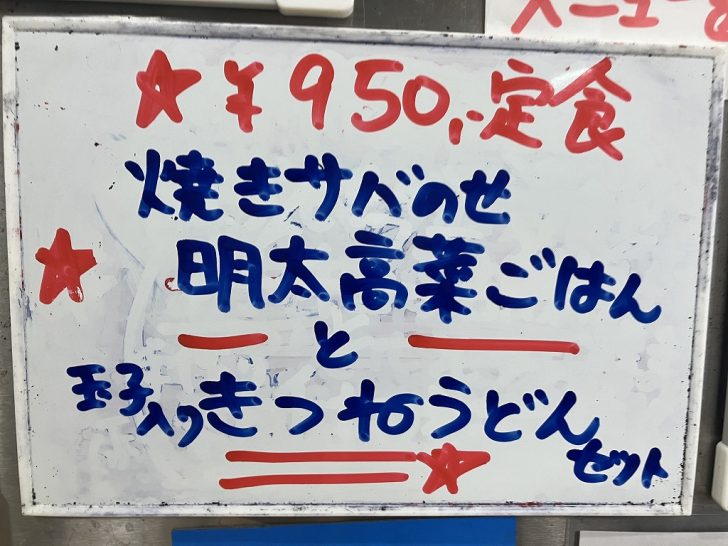 メニュー
¥950,-定食
焼きサバのせ
明太高菜ごはん
と
玉子入りきつねうどん
セット